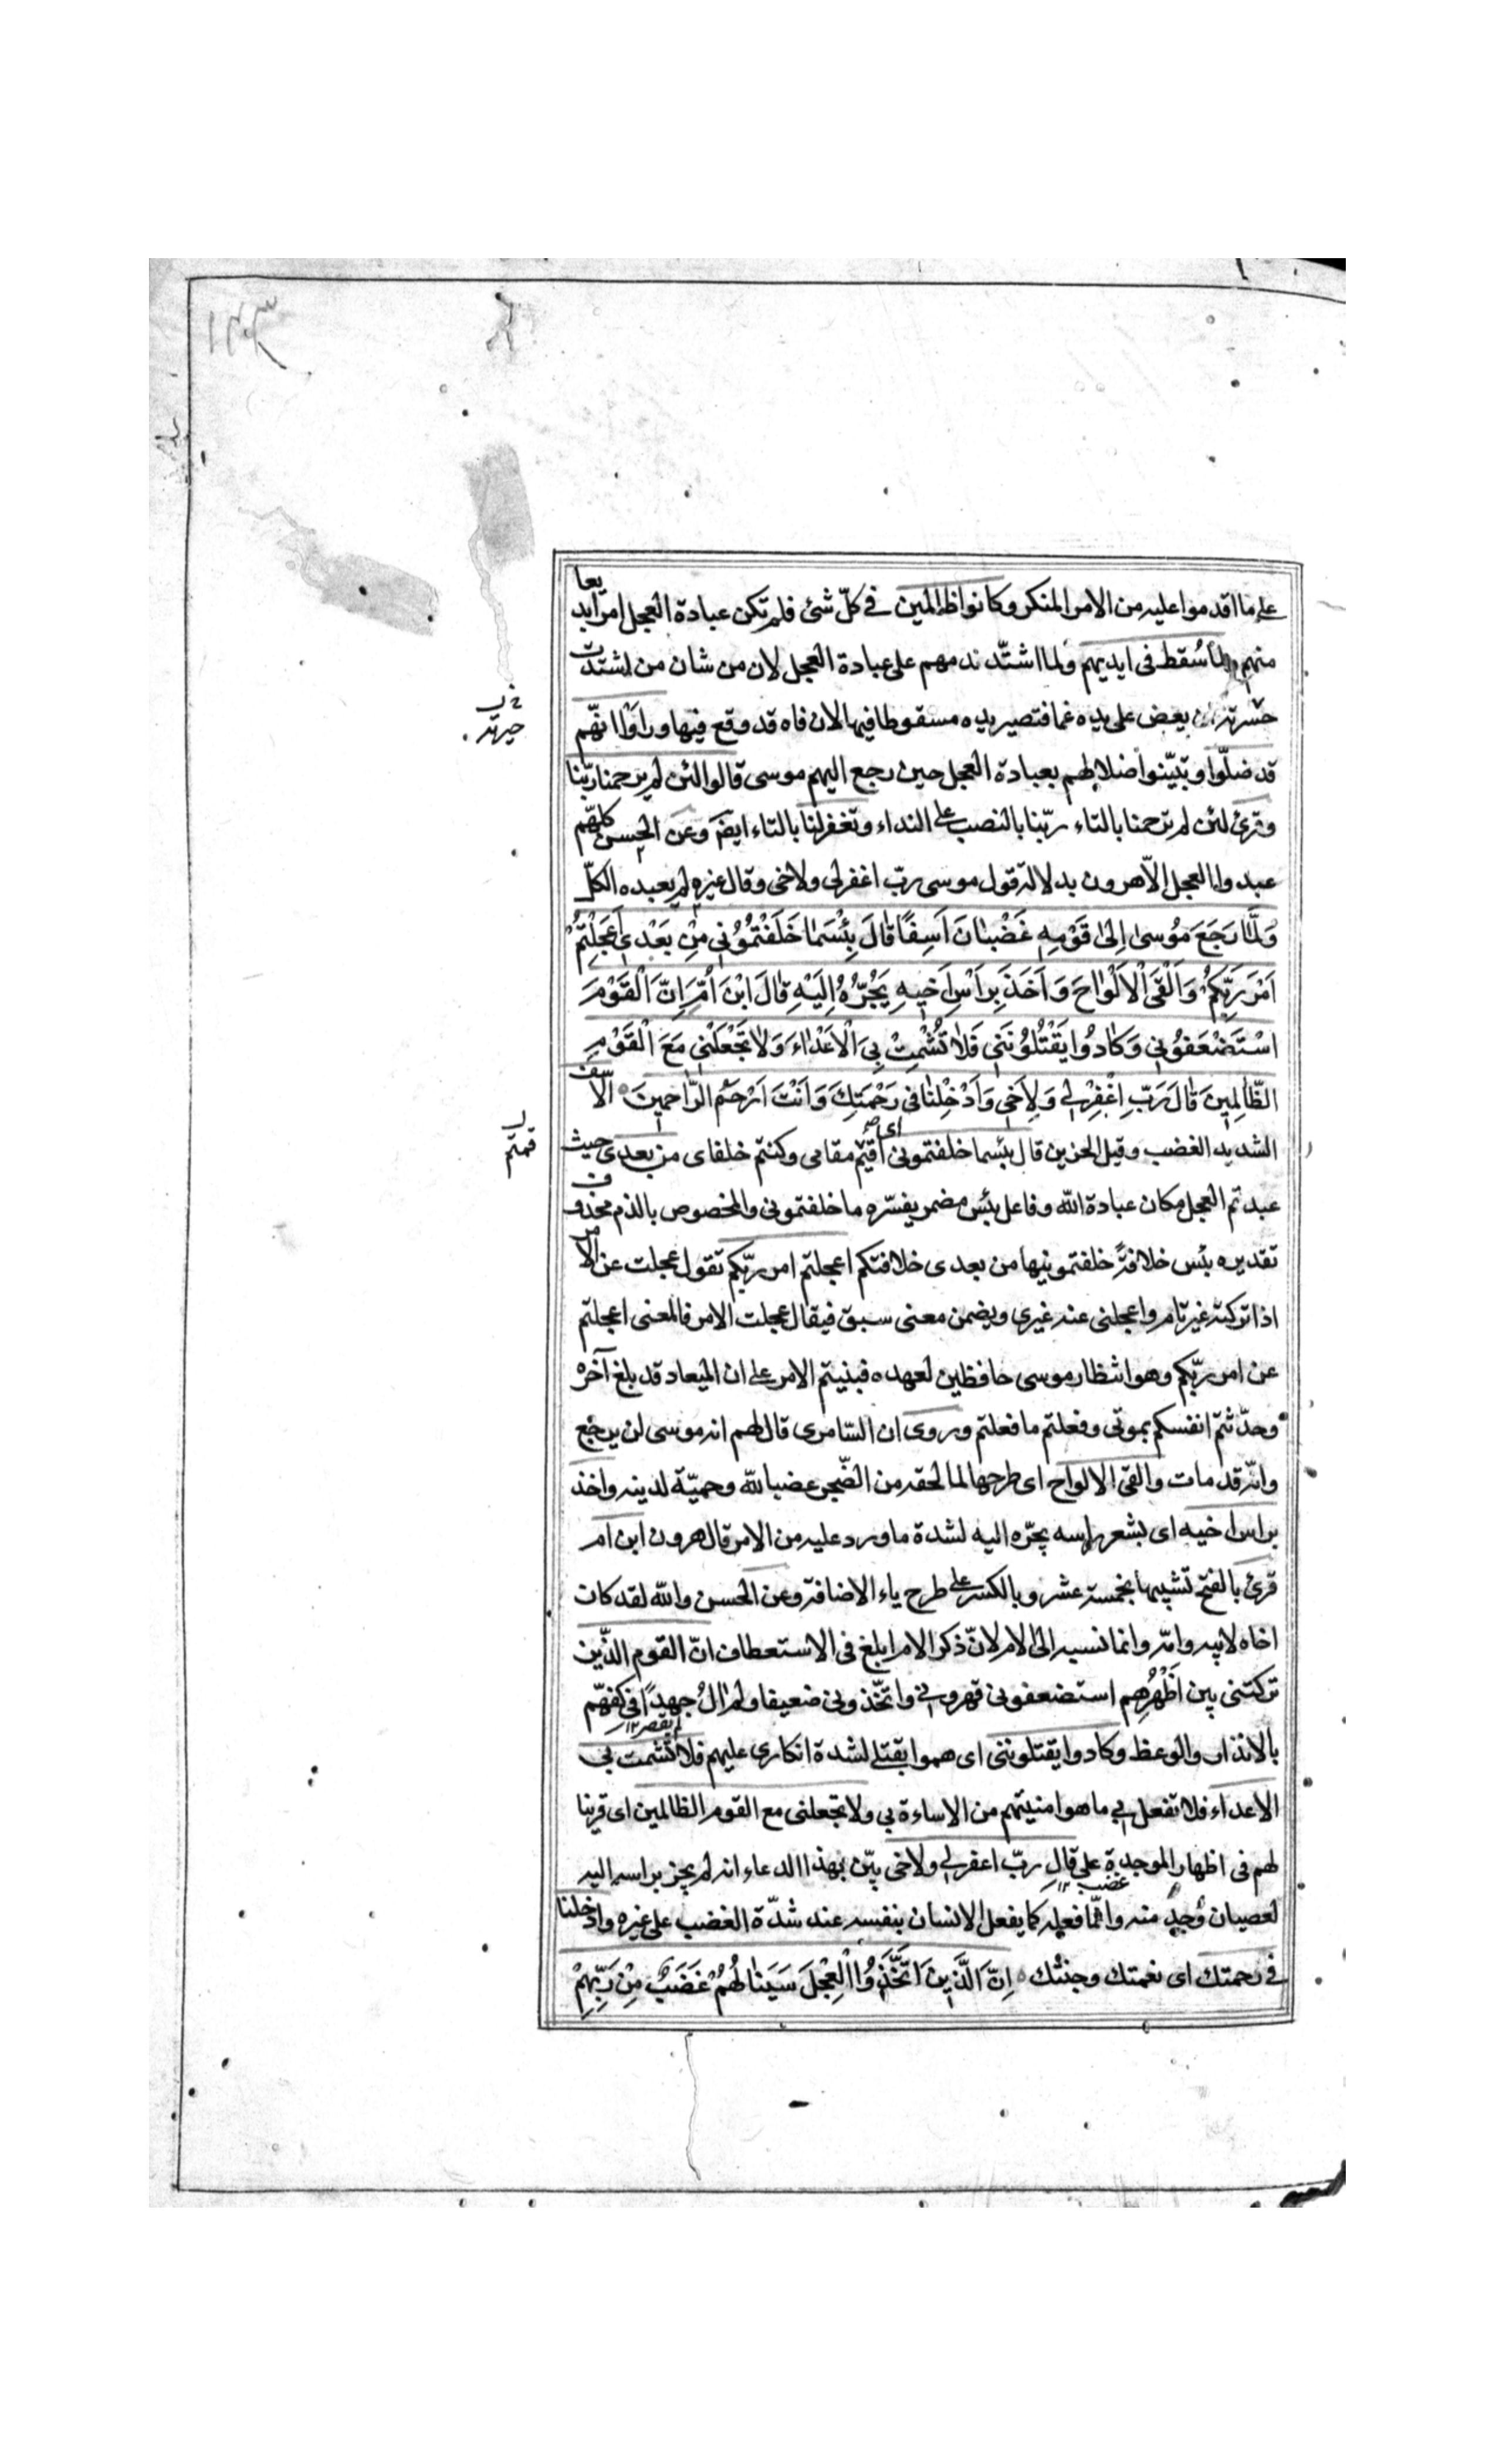 على ما اقدموا عليه من الامر المنكر وكانوا ظالمين فى كلّ شئ فلم تكن عبادة العجل امرا بديعا
منهم ولما سُقط فى ايديهم ولما اشتّد ندمهم على عبادة العجل لان من شان من اشتدّت
حسرته ان يعض على يده غما فتصير يده مسقوطا فيها لان فاه قد وقع فيها وراَوْا انّهم
قد ضلّوا وتبيّنوا ضلالهم بعبادة العجل حين رجع اليهم موسى قالوا لئن لم يرحمنا ربّنا
وقرئ لئن لم ترحمنا بالتاء ربّنا بالنصب على النداء وتغفر لنا بالتاء ايضم وعن الحسن كلهّم
عبدوا العجل الّا هرون بدلالة قول موسى ربّ اغفر لى ولاخى وقال غيره لم يعبده الكلّ
وَلَمَّا رَجَعَ مُوسىٰ اِلىٰ قَوْمِهٖ غَضْبٰانَ اَسِفًا قٰالَ بِئْسَمٰا خَلَفْتُمُوُنِي مِنْ بَعْدِي اَعَجِلْتُمْ
اَمْرَ رَبِّكُمْ وَاَلْقَى الْاَلْوٰاحَ وَاَخَذَ بِرَأْسِ اَخِيهِ يَجُرُّهُ اِلَيْهِ قٰالَ ابْنَ اُمَّ اِنَّ الْقَوْمَ
اسْتَضْعَفُونِي وَكٰادُوا يَقْتُلُونَنِي فَلٰا تُشْمِتْ بِيَ الْاَعْدٰاءَ وَلٰا تَجْعَلْنِي مَعَ الْقَوْمِ
الظّٰالِمِينَ قٰالَ رَبِّ اغْفِرْ لِي وَلِاَخِي وَاَدْخِلْنٰا فِي رَحْمَتِكَ وَاَنْتَ اَرْحَمُ الرّٰاحِمِينَ الاسف
الشديد الغضب وقيل الحزين قال بئسما خلفتمونى اى اقمتم مقامى وكنتم خلفاى من بعدى حيث
عبدتم العجل مكان عبادة الله وفاعل بئس مضمر يفسّره ما خلفتمونى والمخصوص بالذم محذوف
تقديره بئس خلافةً خلفتمونيها من بعدى خلافتكم اعجلتم امر ربّكم تقول عجلت عن الامر
اذا تركته غير تام واعجلنى عنه غيرى ويضمن معنى سبق فيقال عجلت الامر فالمعنى اعجلتم
عن امر ربّكم وهو انتظار موسى حافظين لعهده فبنيتم الامر على ان الميعاد قد بلغ آخره
وحدّثتم انفسكم بموتى وفعلتم ما فعلتم وروى ان السّامرى قال لهم ان موسى لن يرجع
وانّه قد مات والقى الالواح اى طرحها لما لحقه من الضّجر غضبا لله وحميّة لدينه واخذ
براس اخيه اى بشعر راسه يجرّه اليه لشدة ما ورد عليه من الامر قال هرون ابن ام
قرئ بالفتح تشبيها بخمسة عشر وبالكسر على طرح ياء الاضافة وعن الحسن والله لقد كان
اخاه لابيه وامّه وانما نسبه الى الام لانّ ذكر الام ابلغ فى الاستعطاف انّ القوم الذّين
تركتنى بين اَظْهُرِهِم استضعفونى قهرونى واتّخذونى ضعيفا ولم اٰلُ جهدًا فى كفّهم
لم يقصر ١٢
بالانذار والوعظ وكادوا يقتلوننى اى هموا بقتلى لشدة انكارى عليهم فلا تشمت بى
الاعداء فلا تفعل بى ما هو امنيتهم من الاساءة بى ولا تجعلنى مع القوم الظالمين اى قرينا
لهم فى اظهار الموجدة على قال ربّ اغفر لى ولاخى بيّن بهذا الدعاء انه لم يجز براسه اليه
غضب ١٢
لعصيان وُجد منه وانّما فعله كما يفعل الانسان بنفسه عند شدّة الغضب على غيره وادخلنا
فى رحمتك اى نعمتك وجنتك اِنَّ الَّذِينَ اتَّخَذُوا الْعِجْلَ سَيَنٰالُهُمْ غَضَبٌ مِنْ رَبِّهِمْ